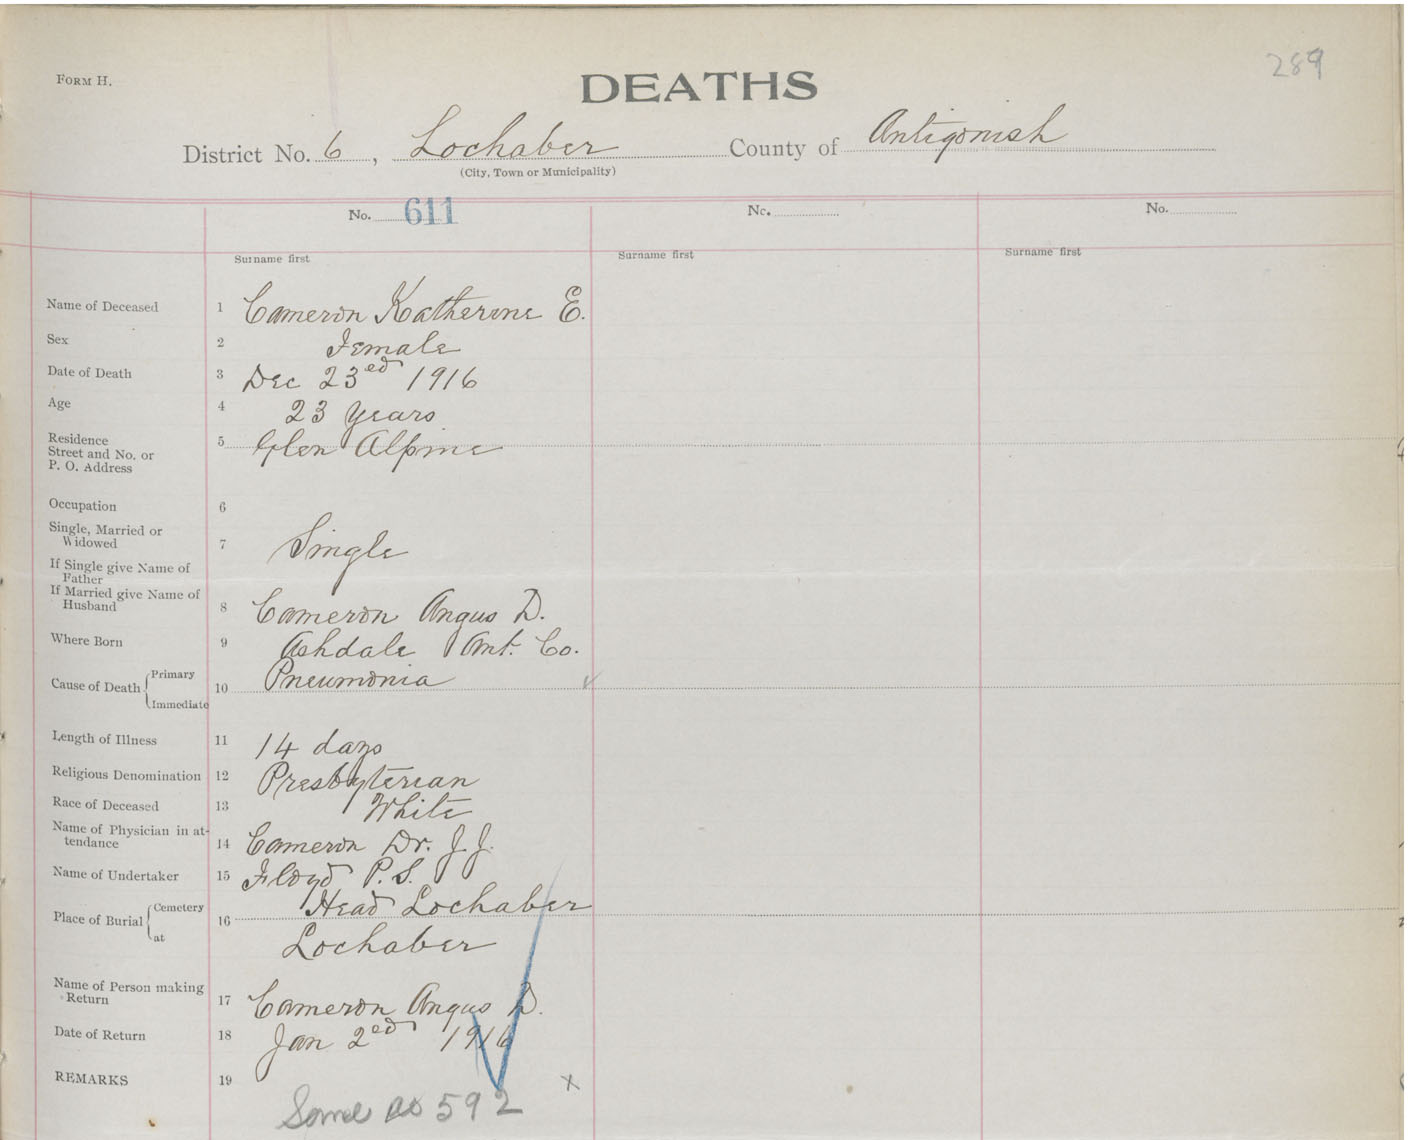 289
FORM H.
DEATHS
District No. 6, Lochaber County of Antigonish
(City, Town or Municipality)
No. 611 No. No.
Surname first Surname first Surname first
Name of Deceased 1 Cameron Katherine E.
Sex 2 Female
Date of Death 3 Dec 23ed 1916
Age 4 23 Years
Residence 5 Glen Alpine
Street and No. or
P. O. Address
Occupation 6
Single, Married or
Widowed 7 Single
If Single give Name of
Father
If Married give Name of
Husband 8 Cameron Angus D.
Where Born 9 Ashdale Ant. Co.
Cause of Death Primary 10 Pneumonia
Immediate
Length of Illness 11 14 days
Religious Denomination 12 Presbyterian
Race of Deceased 13 White
Name of Physician in at-
tendance 14 Cameron Dr. J. J.
Name of Undertaker 15 Floyd P. S.
Place of Burial Cemetery 16 Head Lochaber
at Lochaber
Name of Person making
Return 17 Cameron Angus D.
Date of Return 18 Jan 2ed 1916
REMARKS 19 x
Same as 592